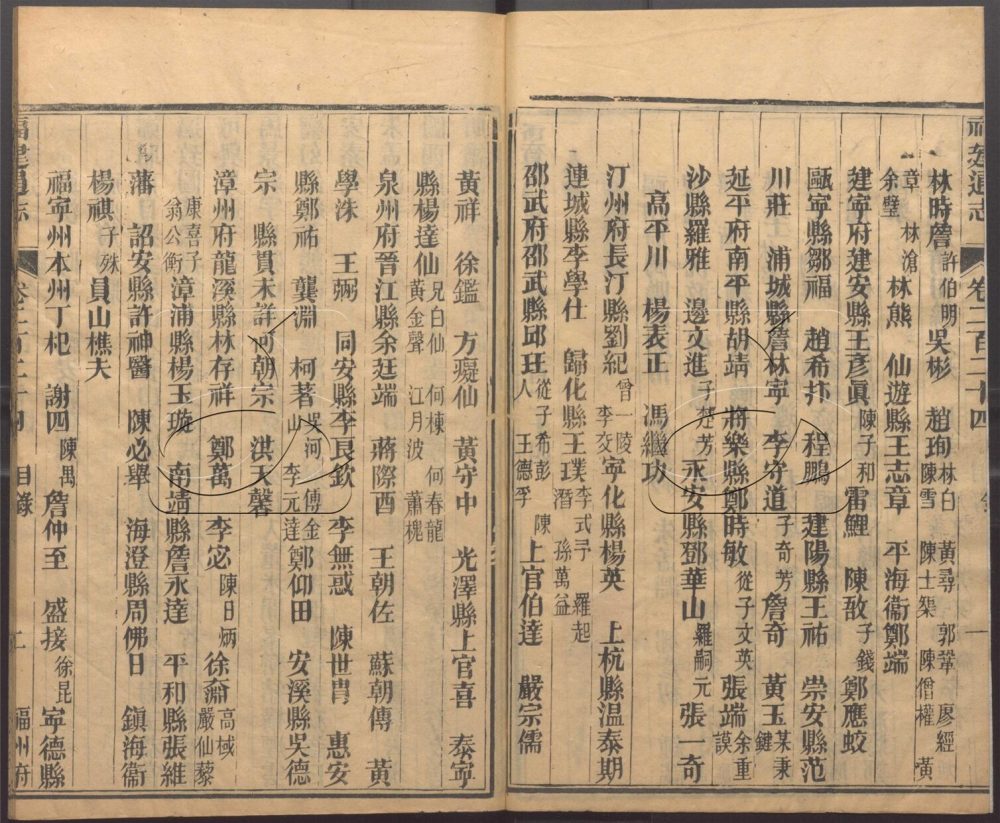 福建通志 卷二百二十四
林時詹 許伯明 吳彬 趙珣 林白 陳雪 黃尋 陳士榘 郭鞏 陳僧權 廖經 黃
章 余璧 林滄 林熊 仙遊縣王志章 平海衞鄭端
建寧府建安縣王彥眞 陳子和 雷鯉 陳敔 子錢 鄭應蛟
甌寧縣鄒福 趙希 程鵬 建陽縣王祐 崇安縣范
川莊 浦城縣詹林寧 李守道 子奇芳 詹奇 黃玉 某秉 鍵
延平府南平縣胡靖 將樂縣鄭時敏 從子文英 張端 余重 謨
沙縣羅雅 邊文進 子楚芳 永安縣鄧華山 羅嗣元 張一奇
高平川 楊表正 馮繼功
汀州府長汀縣劉紀 曾一陵 李交 寧化縣楊英 上杭縣溫泰期
連城縣李學仕 歸化縣王璞 李式 羅起 潛 孫萬益
邵武府邵武縣邱玨 從子希彭 人 王德孚 陳 上官伯達 嚴宗儒
黃祥 徐鑑 方癡仙 黃守中 光澤縣上官喜 泰寧
縣楊達仙 兄白仙 黃金聲 何棟 江月波 何春龍 蕭槐
泉州府晉江縣余廷端 蔣際酉 王朝佐 蘇朝傳 黃
學洙 王弼 同安縣李良欽 李無惑 陳世胄 惠安
縣鄭祐 龔淵 柯著 吳河 山 傅金 李元達 鄭仰田 安溪縣吳德
宗 縣貫未詳 何朝宗 洪天馨
漳州府龍溪縣林存祥 鄭萬 李宓 陳日炳 徐 高棫 嚴仙藜
康喜子 翁公衡 漳浦縣楊玉璇 南靖縣詹永達 平和縣張維
藩 詔安縣許神醫 陳必舉 海澄縣周佛日 鎮海衞
楊祺 子殊 員山樵夫
福寧州本州丁杞 謝四 陳禺 詹仲至 盛接 徐昆 寧德縣
福建通志 卷二百二十四 目錄 福州府